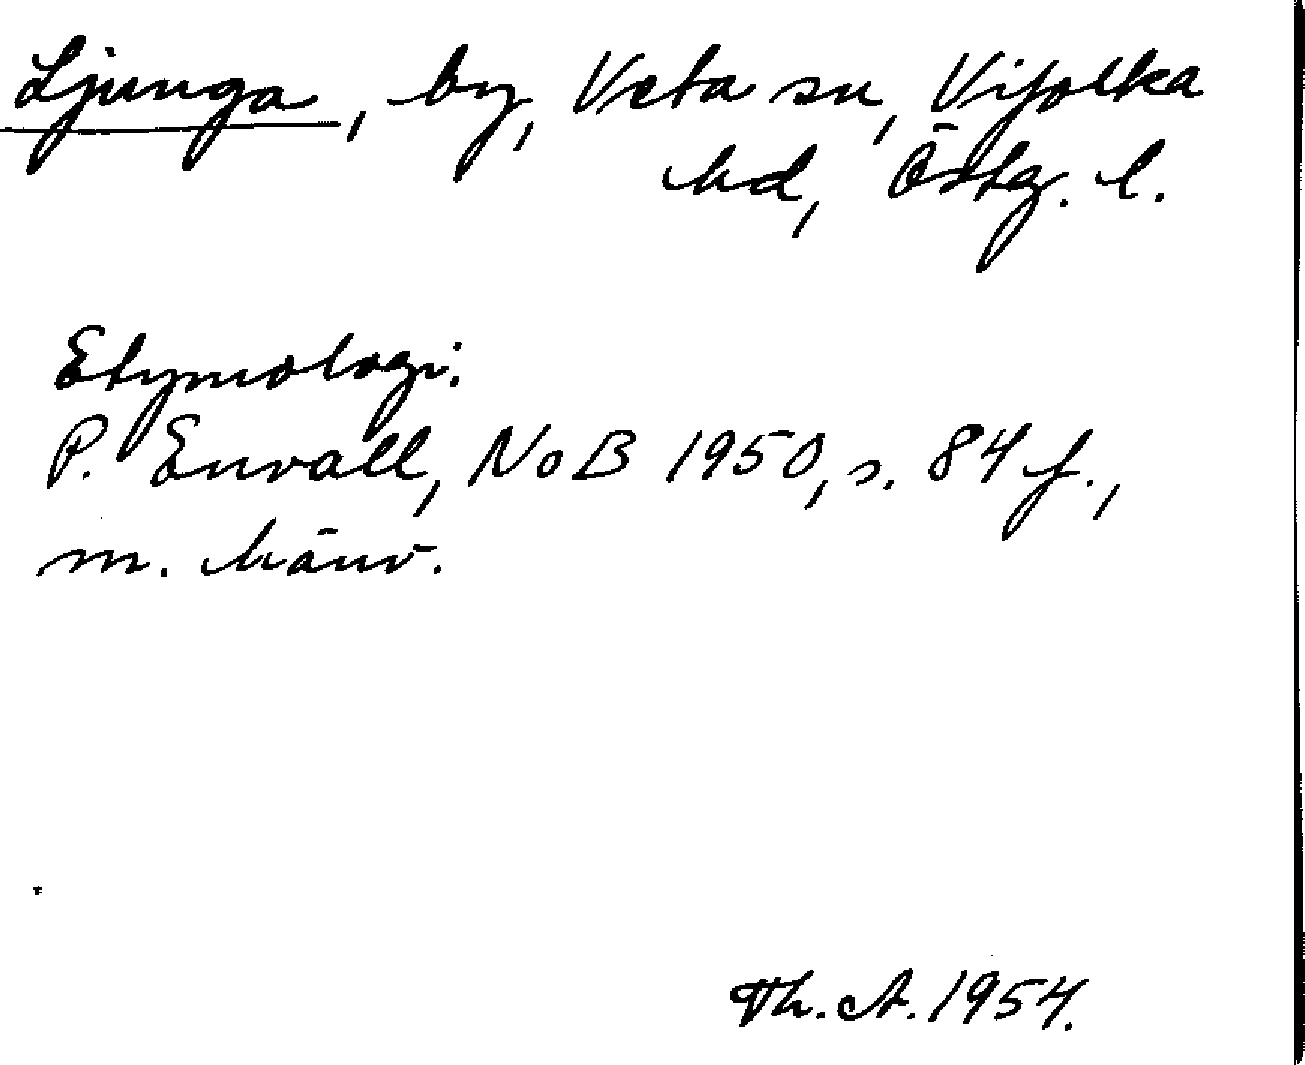 Ljunga, by, Veta sn, Vifolka
hd, Östg. l.
Etymologi:
P. Envall, NoB 1950, s. 84 f.,
m. hänv.
Th. A. 1954.